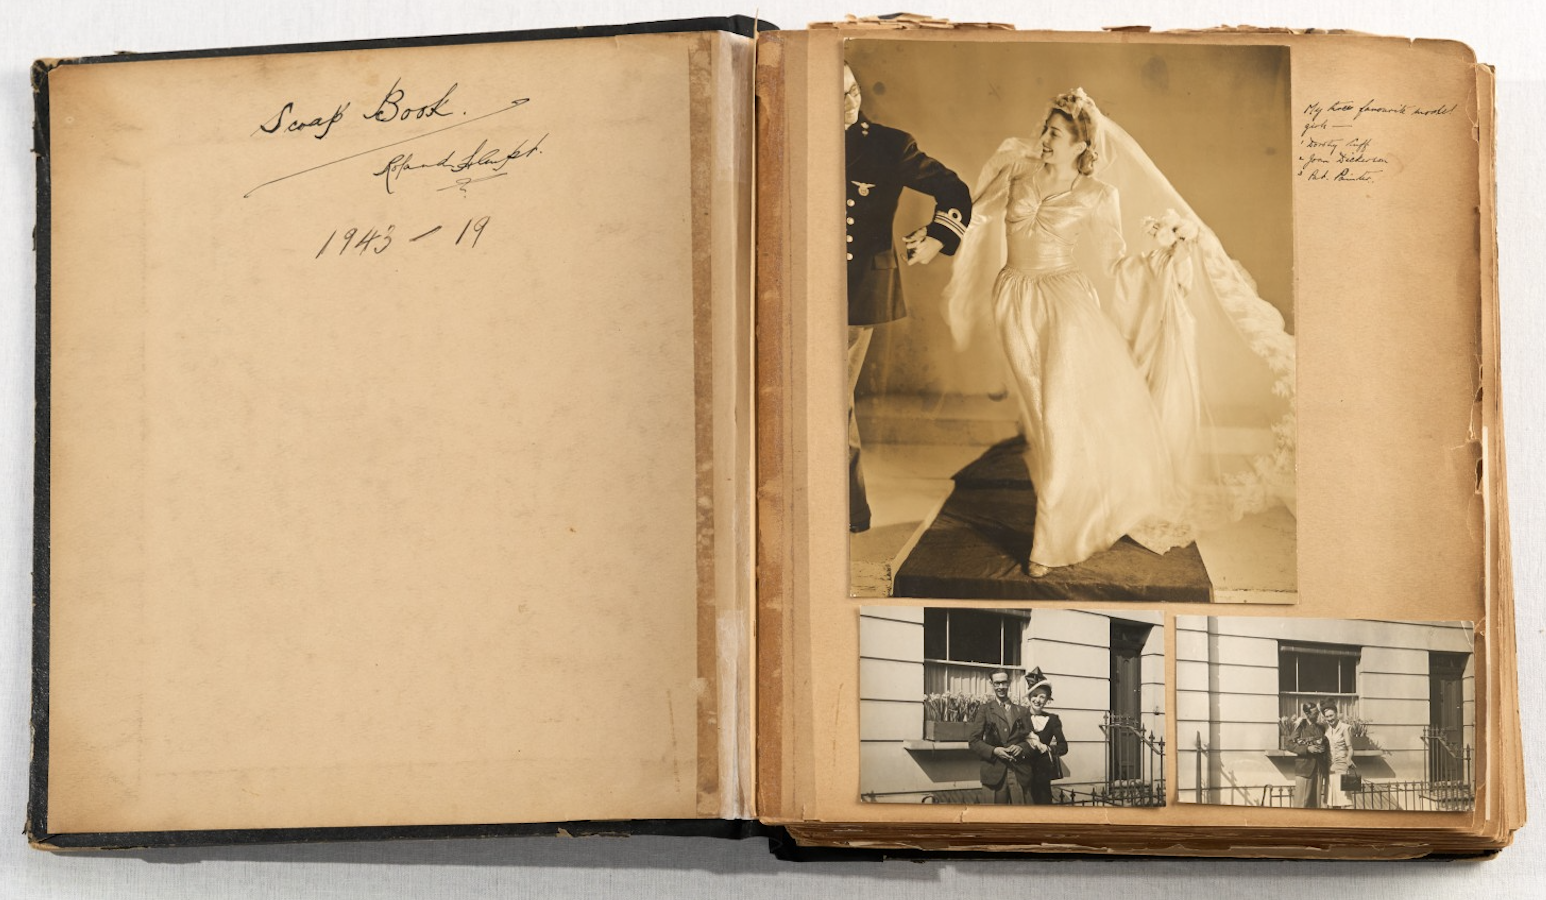 Scrap Book.
Roland
1943 - 19
My three favourite model
girls —
1 Dorothy Cuff
2 Joan Dickerson
3 Pat. Painter.